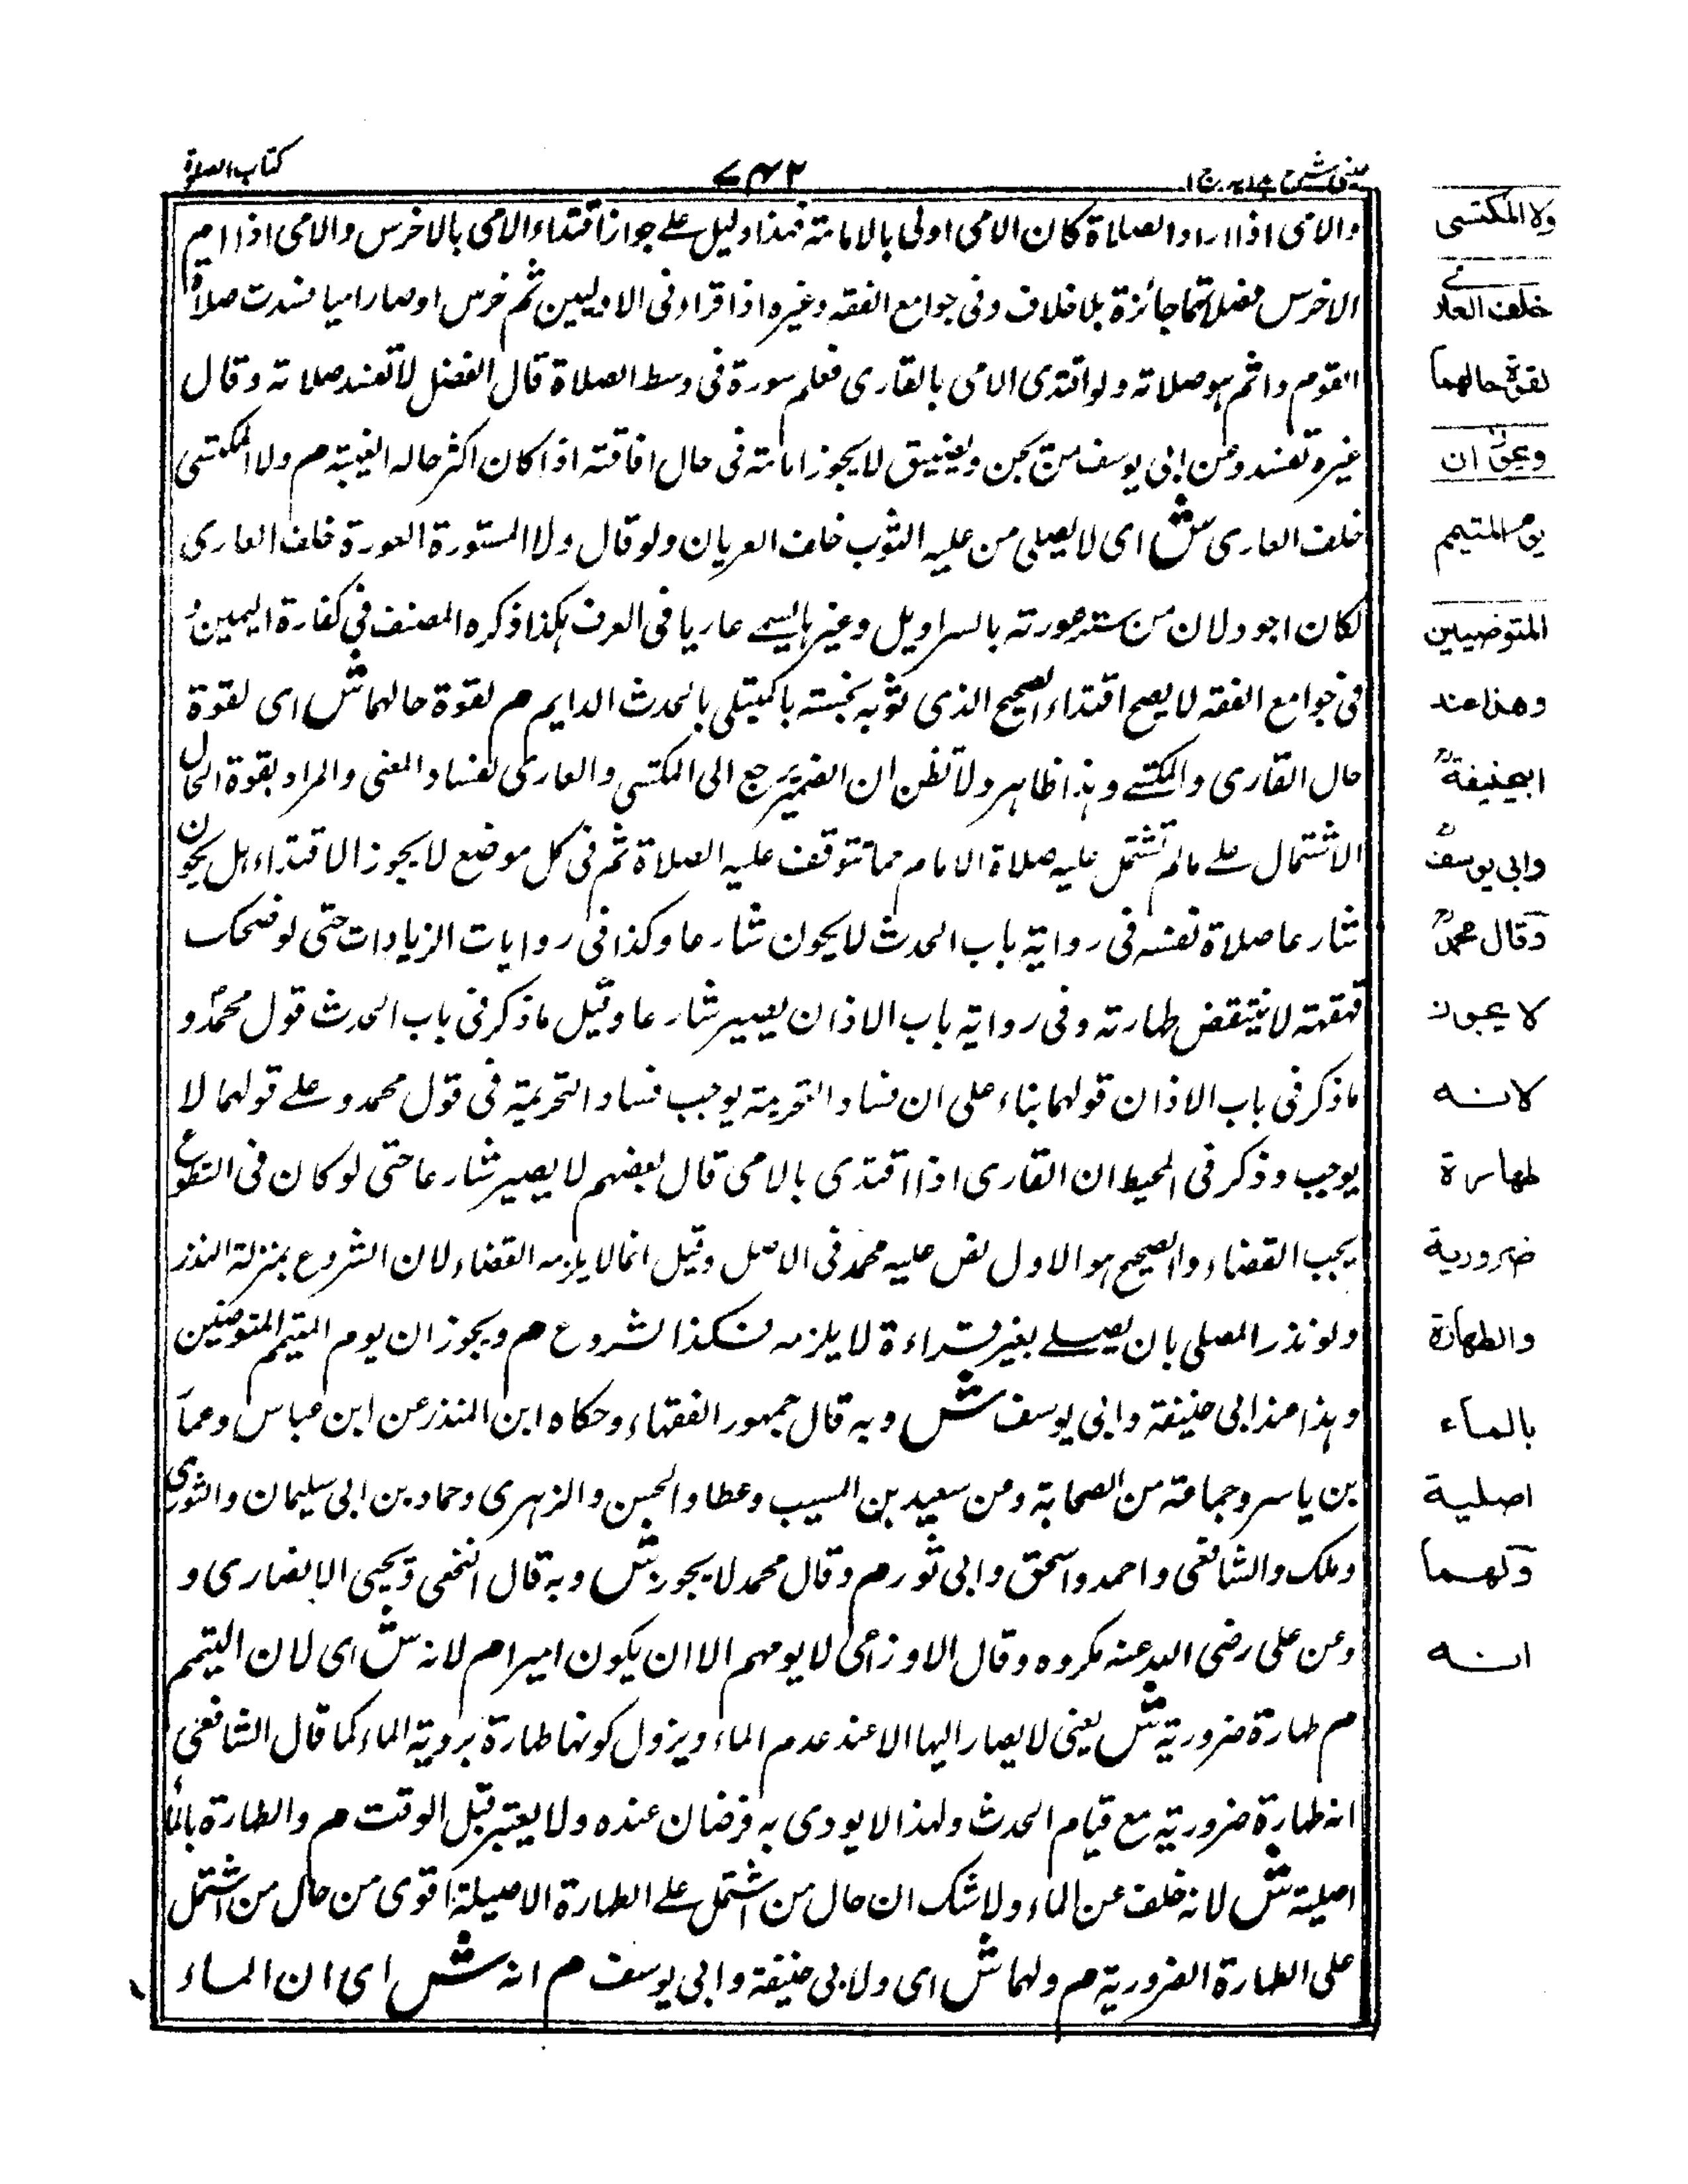 عینی شرح ہدایہ ج ۱
۷۴۲
کتاب الصلوة
والامی اذا ارادا الصلاة كان الامی اولی بالامامته فهذا دلیل علے جواز اقتداء الامی بالاخرس والامی اذا ام
الاخرس فصلاتهما جائزة بلا خلاف وفی جوامع الفقه وغیره اذا قرا فی الاولیین ثم خرس او صار امیا فسدت صلاة
القوم واتم هو صلاته ولو اقتدی الامی بالقاری فعلم سورة فی وسط الصلاة قال الفضل لا تفسد صلاته وقال
غیره تفسد وعن ابی یوسف من یجن ویفیق لا یجوز امامته فی حال افاقته اذا كان اكثر حاله الغیبته م ولا المكتسی
خلف العاری ش ای لا یصلی من علیه الثوب خلف العریان ولو قال ولا المستورة العورة خلف العاری
لكان اجود لان من ستر عورته بالسراویل وغیرها یسمے عاریا فی العرف هكذا ذكره المصنف فی كفارة الیمین و
فی جوامع الفقه لا یصح اقتداء الصحیح الذی ثوبه نجسته بالمبتلی بالحدث الدایم م لقوة حالهما ش ای لقوة
حال القاری والمكتسے وهذا ظاهر ولا تظن ان الضمیر یرجع الی المكتسی والعاری لفساد المعنی والمراد بقوة الحال
الاشتمال علے مالم تشتمل علیه صلاة الامام مما تتوقف علیه الصلاة ثم فی كل موضع لا یجوز الاقتداء هل یكون
شارعا صلاة نفسه فی روایة باب الحدث لا یكون شارعا وكذا فی روایات الزیادات حتی لو ضحك
قهقهته لا ینتقض طهارته وفی روایة باب الاذان یصیر شارعا وقیل ما ذكر فی باب الحدث قول محمد و
ما ذكر فی باب الاذان قولهما بناء علی ان فساد التحریمة یوجب فساد التحریمة فی قول محمد وعلے قولهما لا
یوجب وذكر فی المحیط ان القاری اذا اقتدی بالامی قال بعضهم لا یصیر شارعا حتی لو كان فی التطوع
یجب القضاء والصحیح هو الاول نص علیه محمد فی الاصل وقیل انما لا یلزمه القضاء لان الشروع بمنزلة النذر
ولو نذر المصلی بان یصلے بغیر قراءة لا یلزمه فكذا الشروع م ویجوز ان یوم المتیمم المتوضئین
وهذا عند ابی حنیفة وابی یوسف ش وبه قال جمهور الفقهاء وحكاه ابن المنذر عن ابن عباس وعمار
بن یاسر وجماعة من الصحابة وعن سعید بن المسیب وعطا والحسن والزهری وحماد بن ابی سلیمان والثوری
وملك والشافعی واحمد واسحق وابی ثور م وقال محمد لا یجوز ش وبه قال النخعی ویحیی الانصاری و
وعن علی رضی الله عنه مكروه وقال الاوزاعی لا یومهم الا ان یكون امیرا م لانه ش ای لان التیمم
م طهارة ضروریة ش یعنی لا یصار الیها الا عند عدم الماء ویزول كونها طهارة برویة الماء كما قال الشافعی
انه طهارة ضروریة مع قیام الحدث ولهذا لا یودی به فرضان عنده ولا یعتبر قبل الوقت م والطهارة بالماء
اصلیة ش لانه خلف عن الماء ولا شك ان حال من اشتمل علے الطهارة الاصیلة اقوی من حال من اشتمل
علی الطهارة الضروریة م ولهما ش ای ولابی حنیفة وابی یوسف م انه ش ای ان الماء
ولا المكتسی
خلف العاری
لقوة حالهما
ویجوز ان
یوم المتیمم
المتوضیین
وهذا عند
ابیحنیفة
وابی یوسف
وقال محمد
لا یجوز
لانه
طهارة
ضروریة
والطهارة
بالماء
اصلیة
ولهما
انه